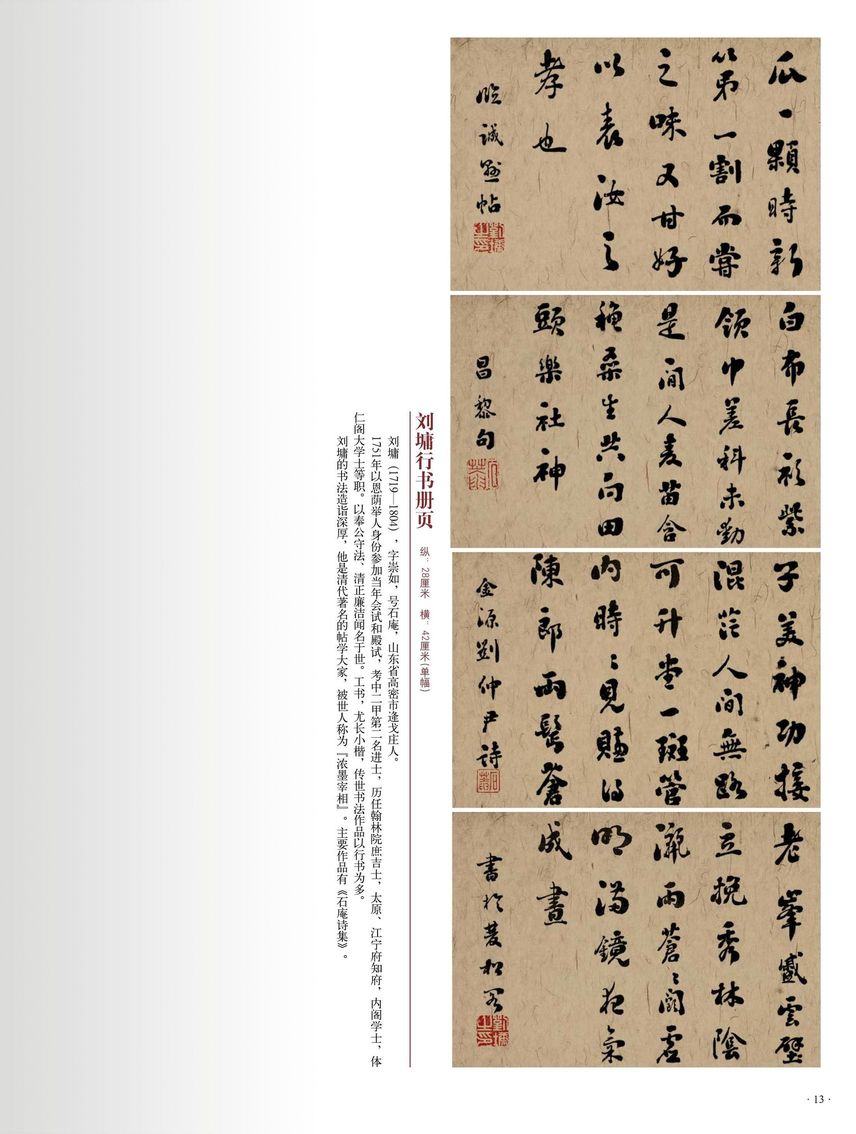 瓜一顆時新
以第一割而嘗
之味又甘好
以表汝之
孝也
臨誠懸帖
白布長衫紫
領巾差科未動
是閒人麦苗含
穟桑生共向田
頭樂社神
昌黎句
子美神功接
混茫人間無路
可升堂一斑管
内時〻見賺得
陳郎兩鬢蒼
金源劉仲尹詩
老峯戲雲壁
立挽秀林陰
灑雨蒼〻闢虛
明滿鏡夜氣
成晝
書於松
刘墉行书册页 纵：28厘米 横：42厘米(单幅)
刘墉（1719—1804），字崇如，号石庵，山东省高密市逄戈庄人。
1751年以恩荫举人身份参加当年会试和殿试，考中二甲第二名进士，历任翰林院庶吉士，太原、江宁府知府，内阁学士，体
仁阁大学士等职。以奉公守法、清正廉洁闻名于世。工书，尤长小楷，传世书法作品以行书为多。
刘墉的书法造诣深厚，他是清代著名的帖学大家，被世人称为『浓墨宰相』。主要作品有《石庵诗集》。
· 13 ·